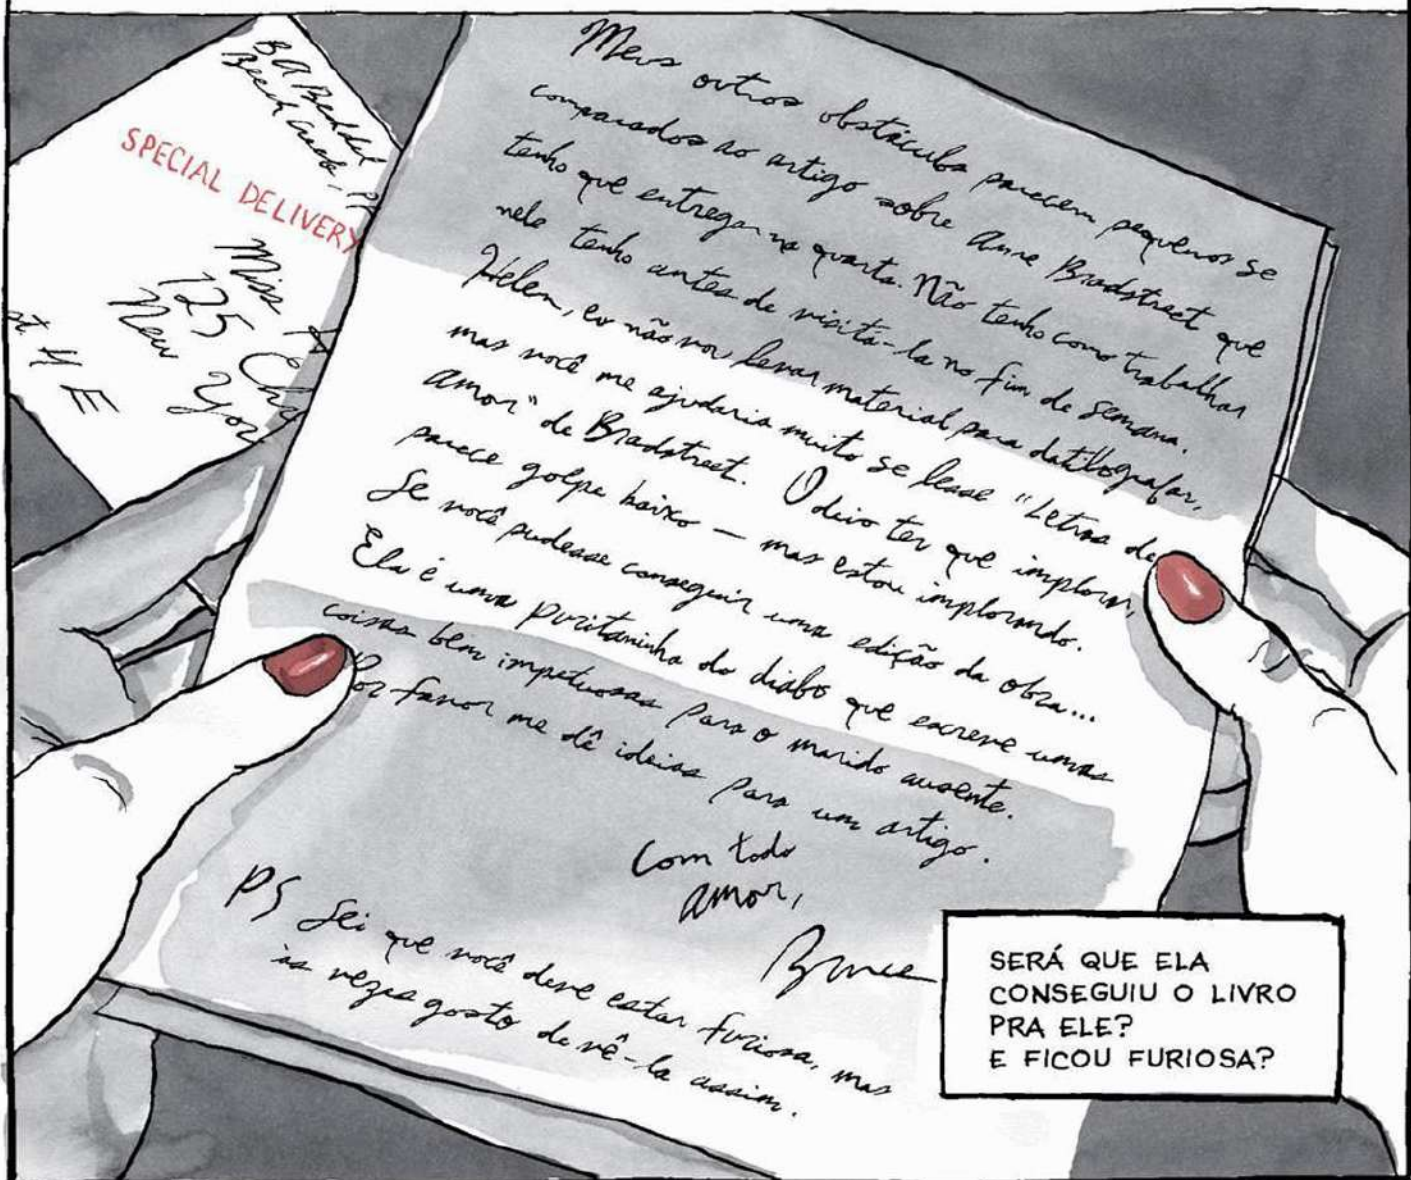 B A Bechdel
Beech Creek, PA
SPECIAL DELIVERY
Miss
125
New Yor
st.
Meus outros obstáculos parecem pequenos se
comparados ao artigo sobre Anne Bradstreet que
tenho que entregar na quarta. Não tenho como trabalhar
nele tenho antes de visitá-la no fim de semana.
Helen, eu não vou levar material para datilografar,
mas você me ajudaria muito se lesse "Letras de
amor" de Bradstreet. Odeio ter que implorar,
parece golpe baixo — mas estou implorando.
Se você pudesse conseguir uma edição da obra...
Ela é uma puritaninha do diabo que escreve umas
coisas bem impetuosas para o marido ausente.
Por favor me dê ideias para um artigo.
Com todo
amor,
Bruce
PS Sei que você deve estar furiosa, mas
às vezes gosto de vê-la assim.
SERÁ QUE ELA
CONSEGUIU O LIVRO
PRA ELE?
E FICOU FURIOSA?